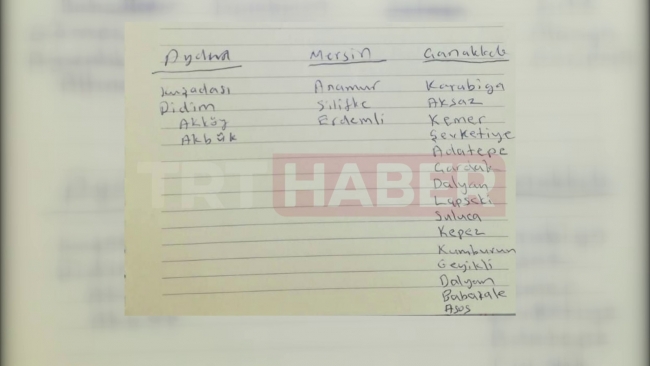 Aydın Mersin Çanakkale
Kuşadası Anamur Karabiga
Didim Silifke Aksaz
Akköy Erdemli Kemer
Akbük Şevketiye
Adatepe
Gardak
Dalyan
Lapseki
Suluca
Kepez
Kumburun
Geyikli
Dalyan
Babakale
Asos
TRT HABER